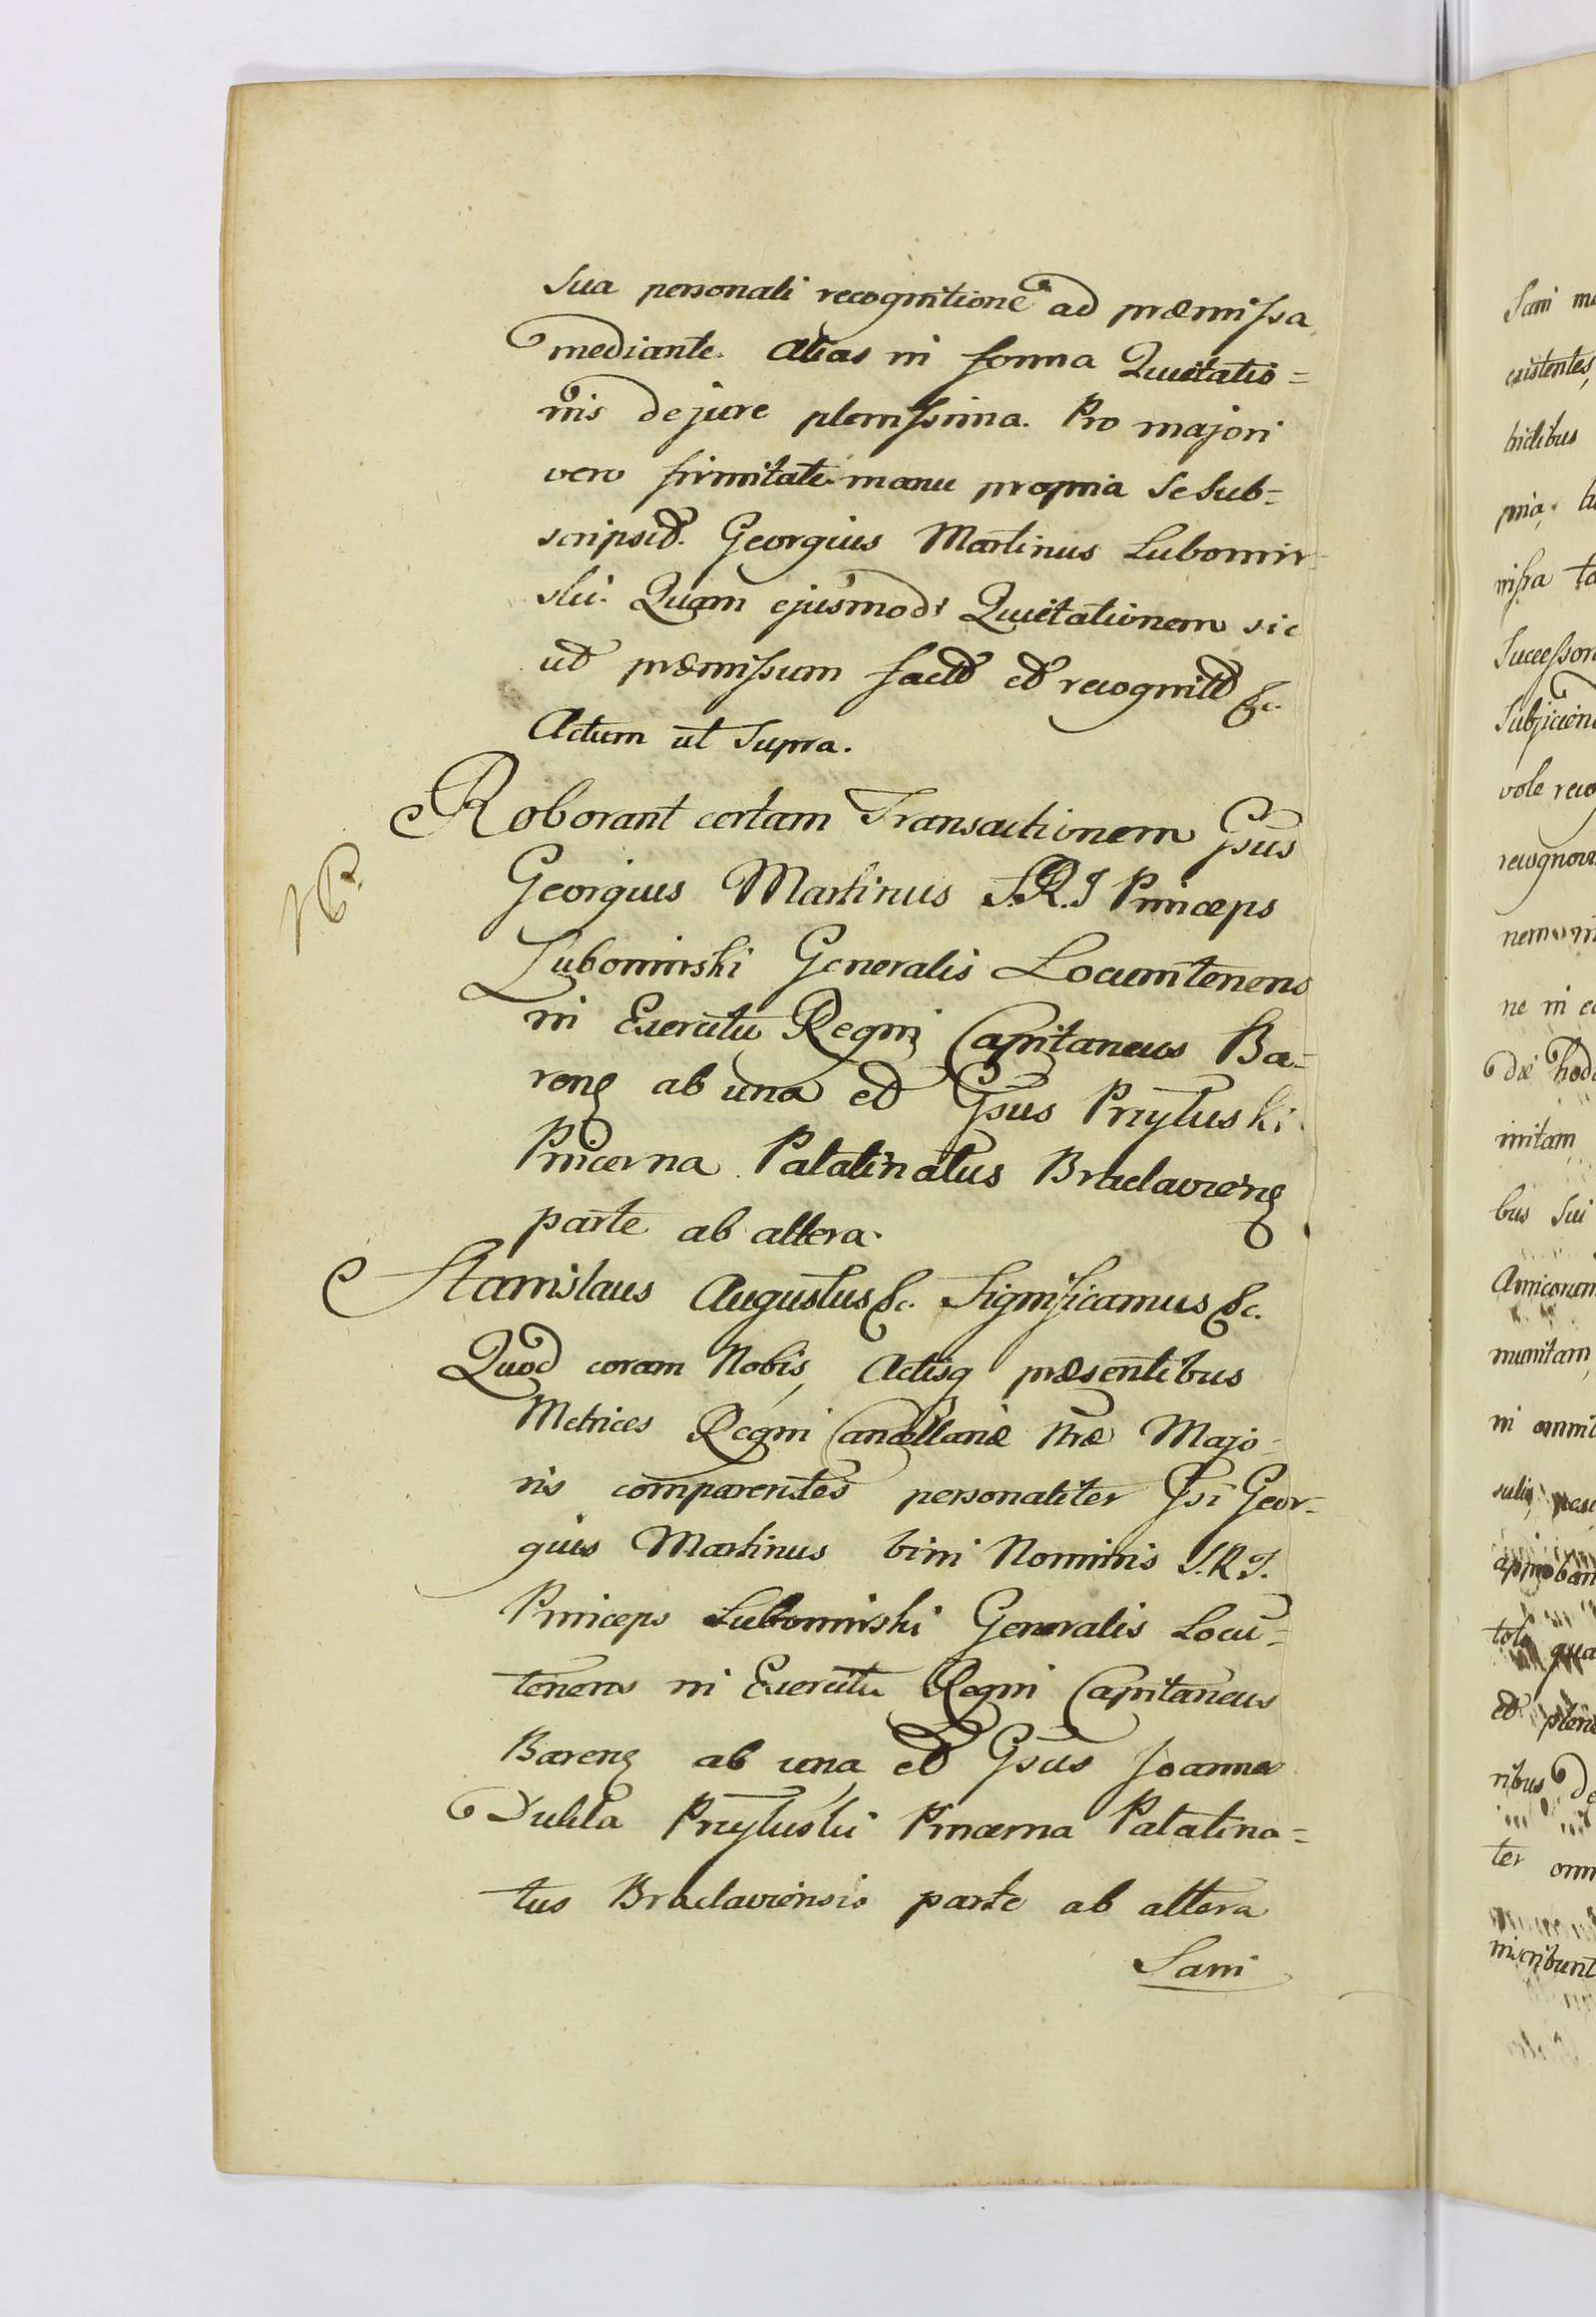 Sua personali recognitione ad præmissa
mediante. Alias in forma Quietatio=
nis de jure plenissima. Pro majori
vero firmitate manu propria se sub=
scripsit. Georgius Martinus Lubomir=
ski. Quam ejusmodi Quietationem sic
ut præmissum factt et recognitt &c.
Actum ut Supra.
Roborant certam Transactionem Gsus
Georgius Martinus S.R.I Princeps
Lubomirski Generalis Locumtenens
in Exercitu Regni Capitaneus Ba=
reng ab una et Gsus Przyluski
Pincerna Palatinatus Braclavieng
parte ab altera.
Stanislaus Augustus &c. Significamus &c.
Quod coram Nobis, Actisq præsentibus
Metrices Regni Cancellariæ Nræ Majo=
ris comparentes personaliter Gsi Geor=
gius Martinus bini Nominis S.R.I.
Princeps Lubomirski Generalis Locu=
tenens in Exercitu Regni Capitaneus
Bareng ab una et Gsus Joannes
Dulila Przyluski Pincerna Palatina=
tus Braclaviensis parte ab altera
Sani
Sani
existentes,
pria,
missa
Successor
vole
ne in
die hod
initam
bus Sui
munitam,
in
et
ribus de
ter
inscribunt